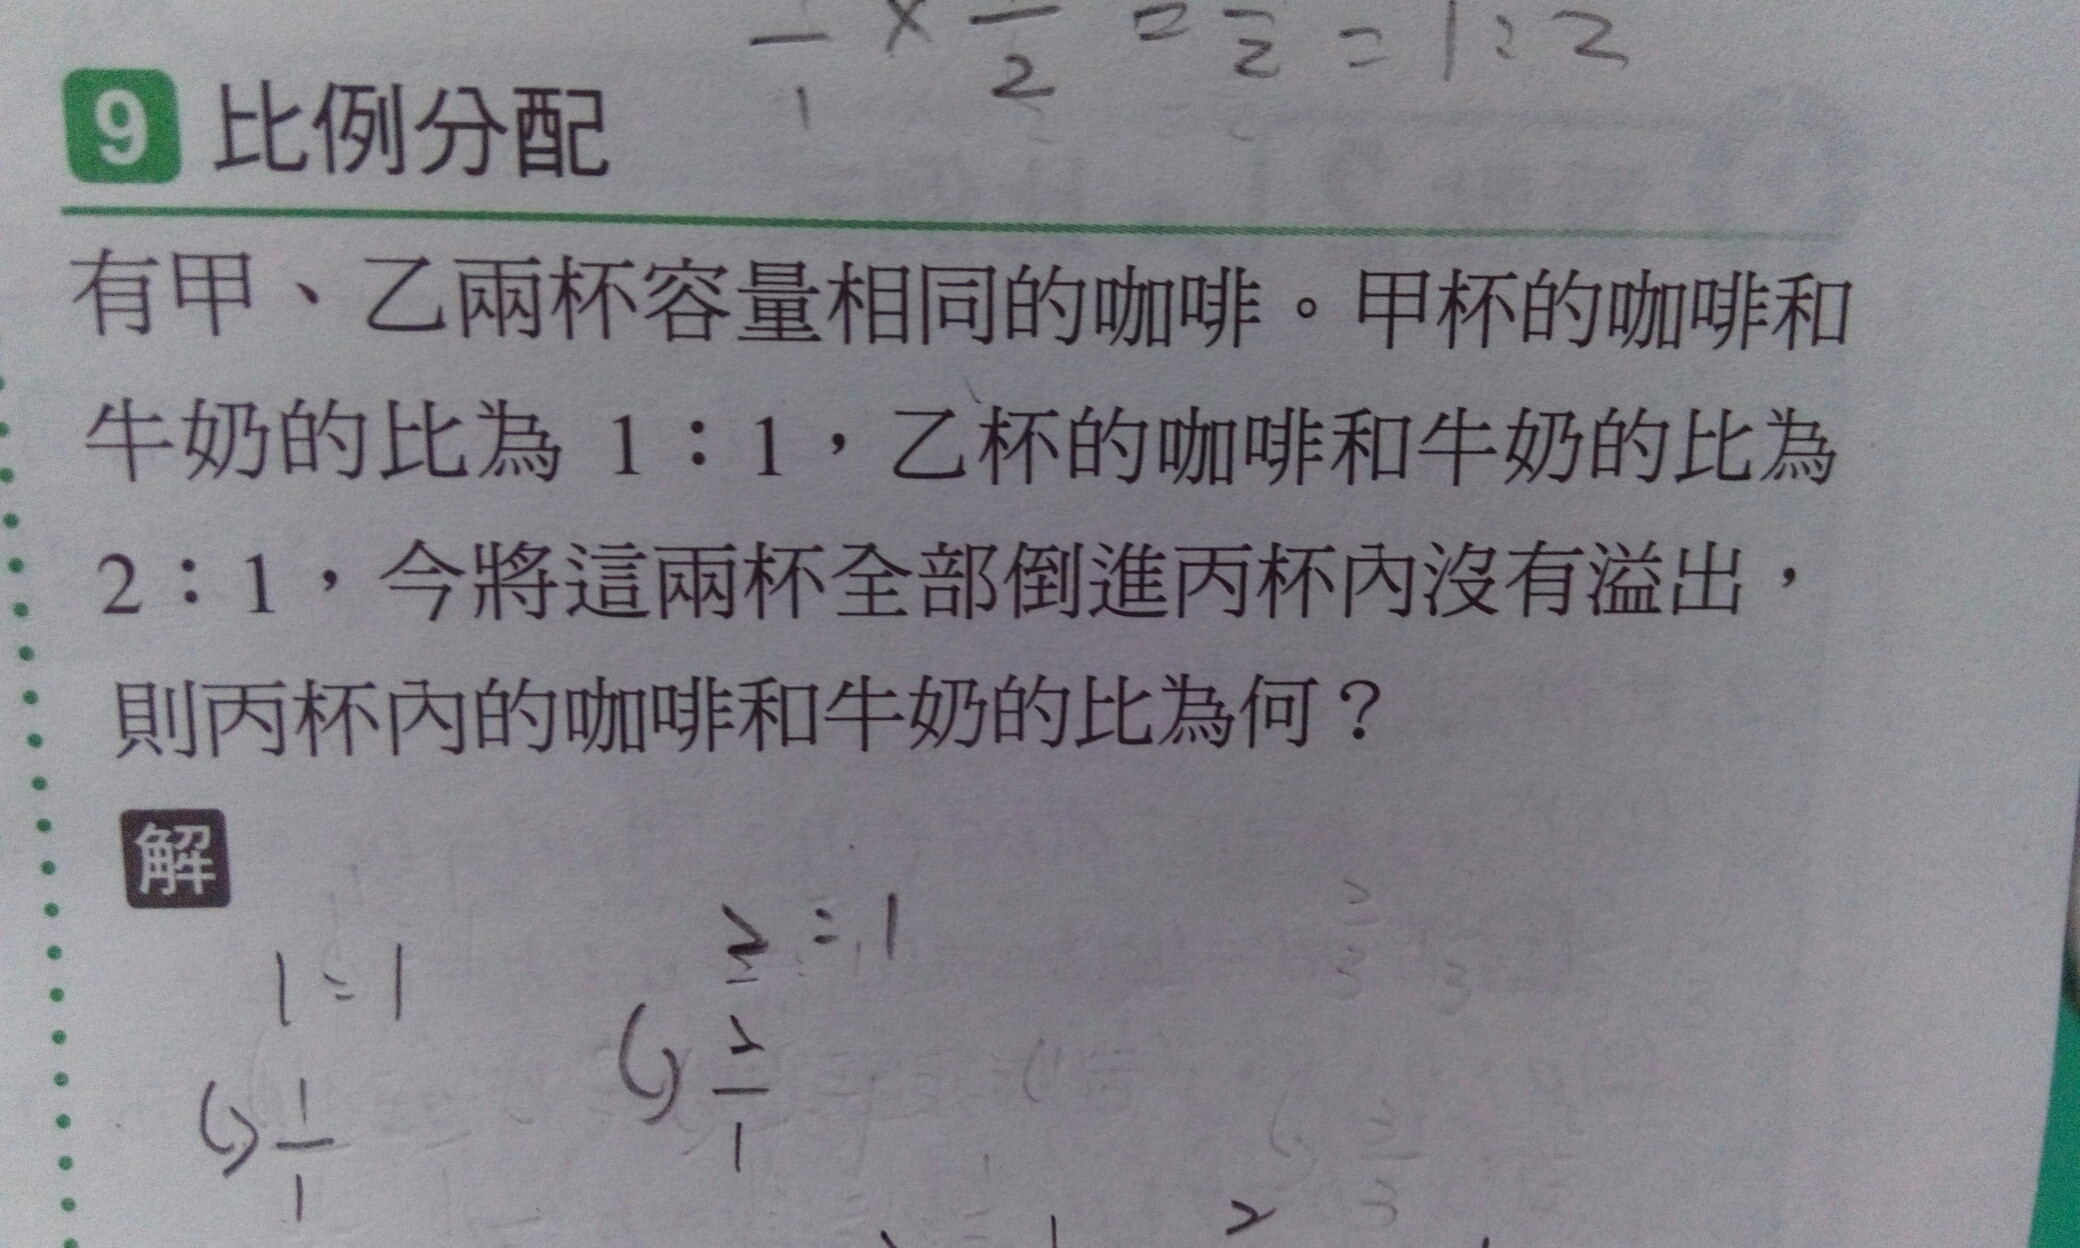 1 × 2 = 2 = 1 : 2
1
9 比例分配
有甲、乙兩杯容量相同的咖啡。甲杯的咖啡和
牛奶的比為 1：1，乙杯的咖啡和牛奶的比為
2：1，今將這兩杯全部倒進丙杯內沒有溢出，
則丙杯內的咖啡和牛奶的比為何？
解
1 : 1
2 : 1
1
1
2
1
2